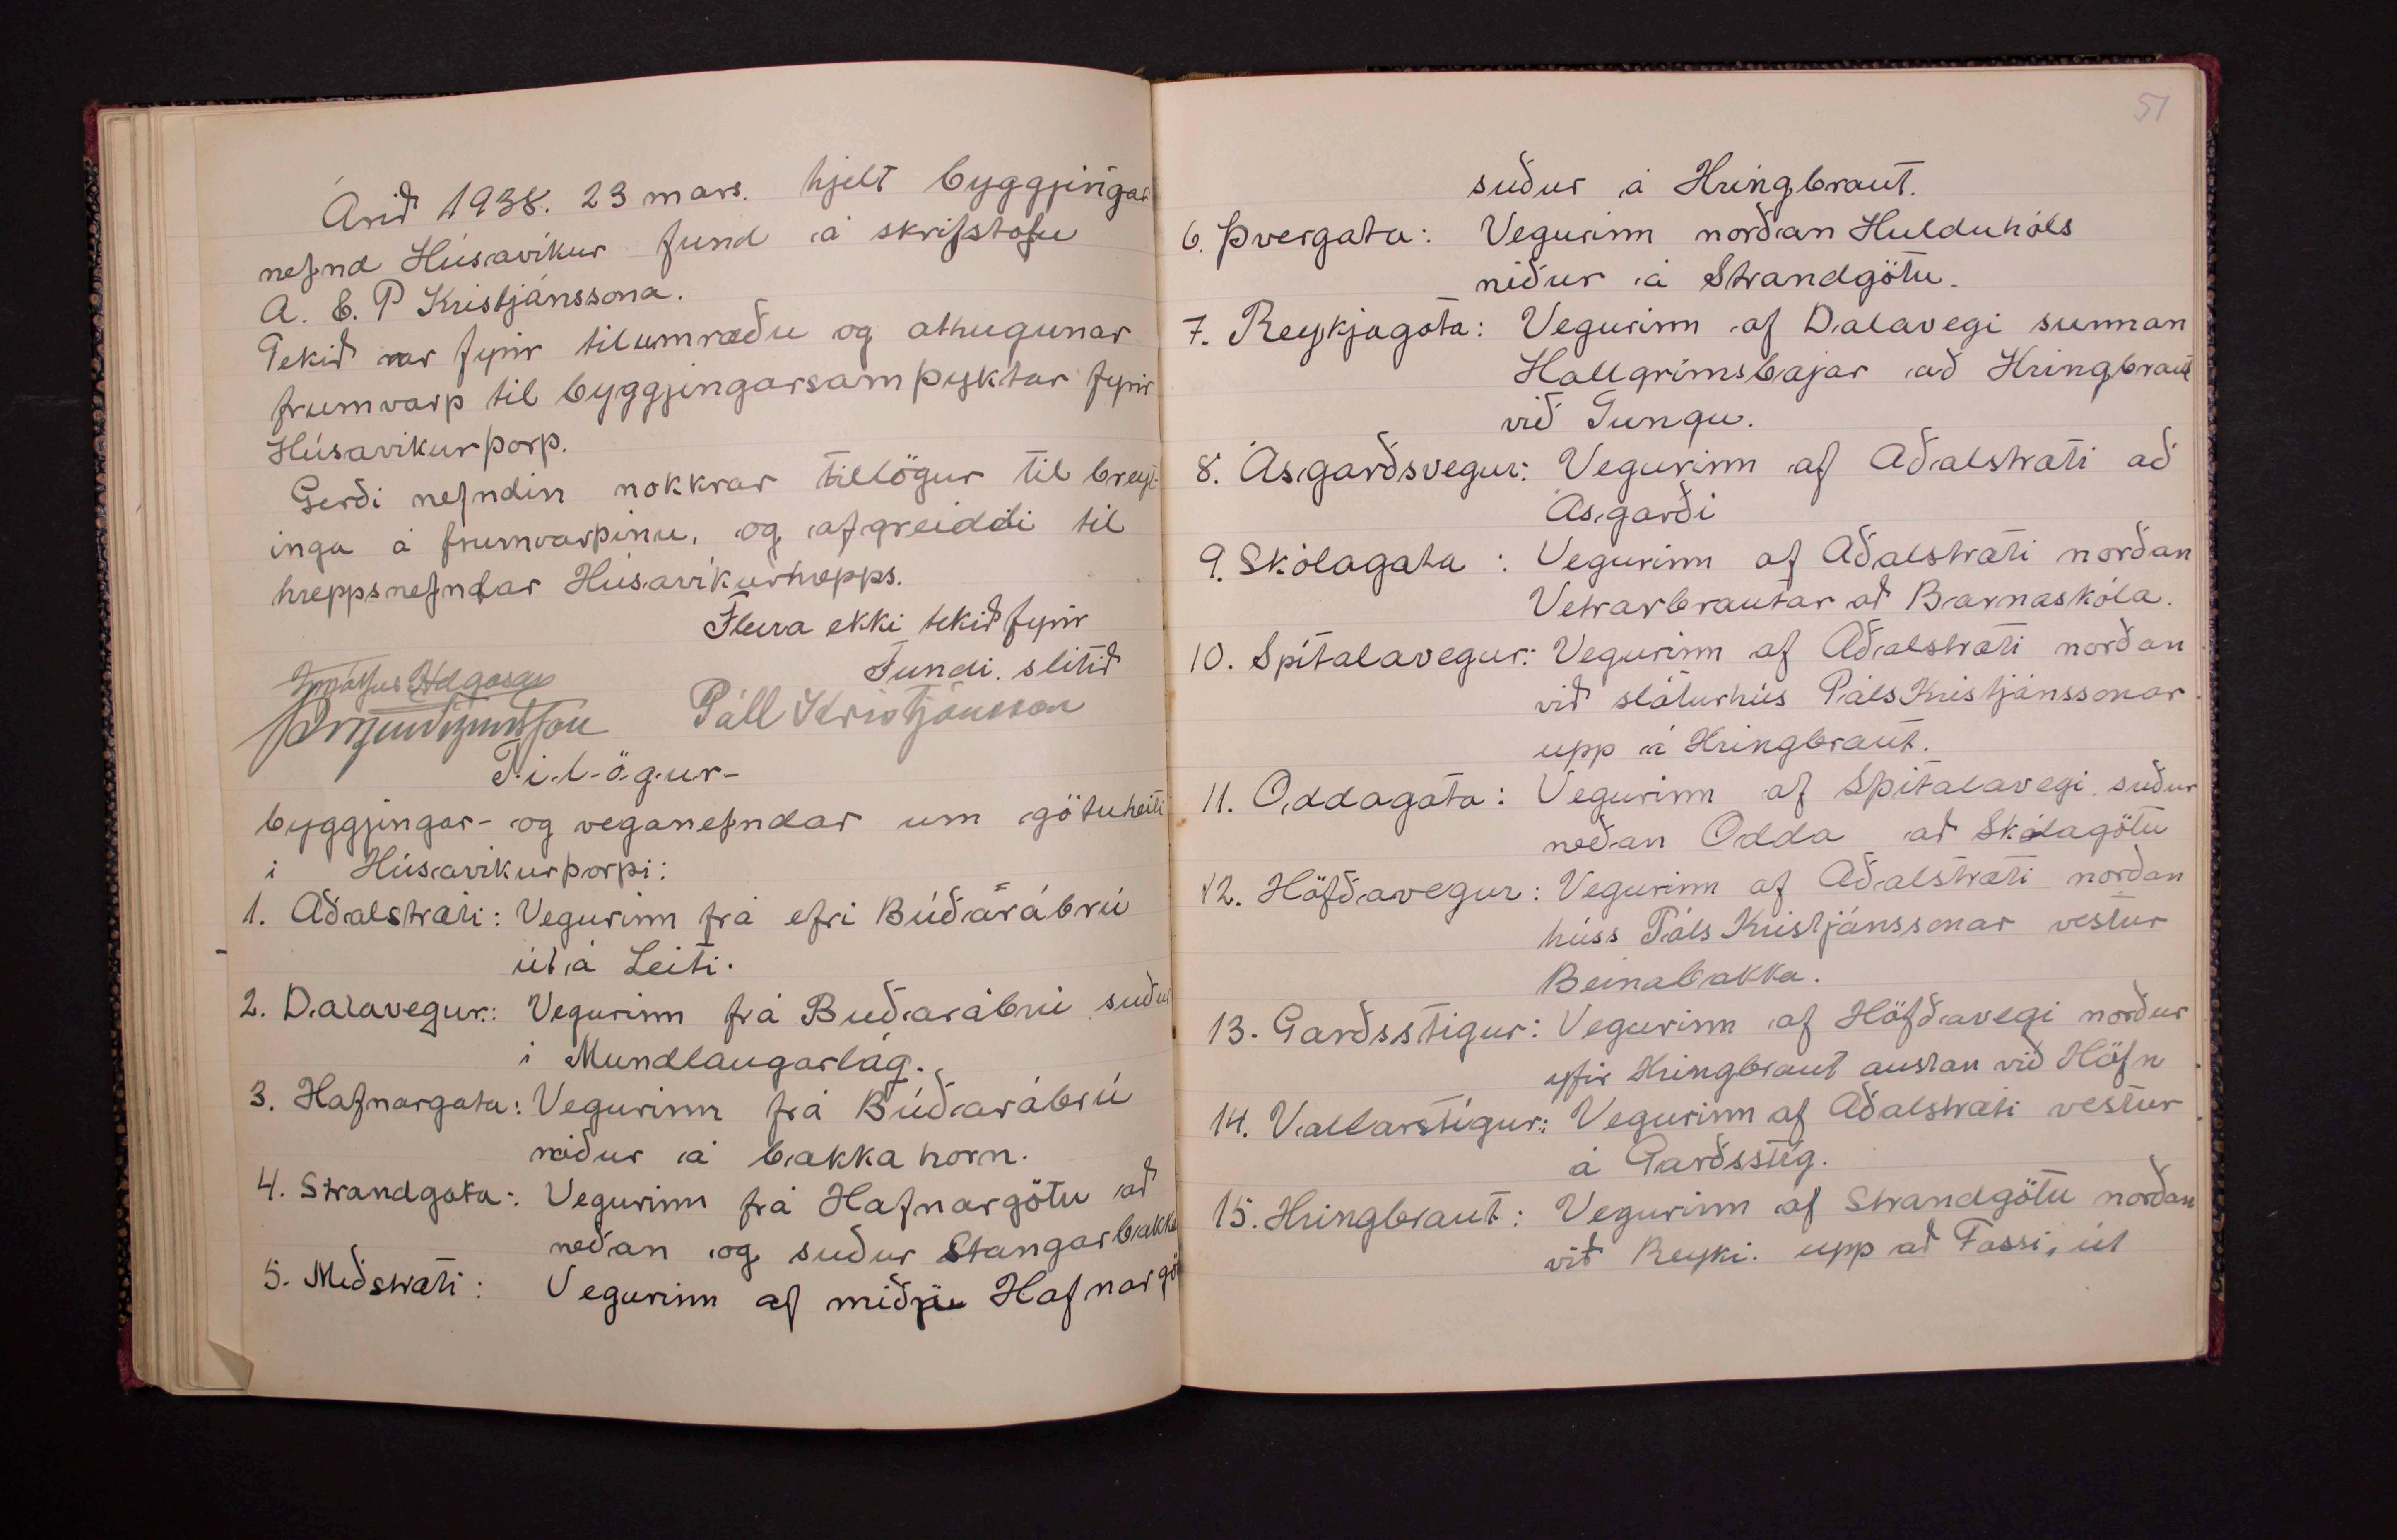 Árið 1938. 23 mars. hjelt byggjingar
nefnd Húsavíkur fund á skrifstofu
A. & P Kristjánssona.
Tekið var fyrir til umræðu og athugunar
frumvarp til byggjingarsamþyktar fyrir
Húsavikurþorp.
Gerði nefndin nokkrar tillögur til breyt-
inga á frumvarpinu, og afgreiddi til
hreppsnefndar Húsavíkurhrepps.
Fleira ekki tekið fyrir
Fundi slitið
Helgason
Páll Kristjánsson
T-i-l-ö-g-u-r-
byggjingar- og veganefndar um götuheiti
i Húsavikurþorpi:
1. Aðalstræti: Vegurinn frá efri Búðarábrú
út á Leiti.
2. Dalavegur: Vegurinn frá Buðarábrú suður
i Mundlaugarlág.
3. Hafnargata: Vegurinn frá Búðarábrú
niður á bakkahorn.
4. Strandgata: Vegurinn frá Hafnargötu að
neðan og suður Stangarbakka
5. Miðstræti: Vegurinn af miðri Hafnargö
51
suður á Hringbraut.
6. Þvergata: Vegurinn norðan Hulduhóls
niður á Strandgötu.
7. Reykjagata: Vegurinn af Dalavegi sunnan
Hallgrímsbæjar að Hringbraut
við Tungu.
8. Ásgarðsvegur: Vegurinn af Aðalstræti að
Ásgarði
9. Skólagata: Vegurinn af Aðalstræti norðan
Vetrarbrautar að Barnaskóla.
10. Spítalavegur: Vegurinn af Aðalstræti norðan
við sláturhús Páls Kristjánssonar
upp á Hringbraut.
11. Oddagata: Vegurinn af Spítalavegi suður
neðan Odda að Skólagötu
12. Höfðavegur: Vegurinn af Aðalstræti norðan
húss Páls Kristjánssonar vestur
Beinabakka.
13. Garðsstigur: Vegurinn af Höfðavegi norður
yfir Hringbraut austan við Höfn
14. Vallarstígur: Vegurinn af Aðalstræti vestur
á Garðsstíg.
15. Hringbraut: Vegurinn af Strandgötu norðan
við Reyki upp að Fossi, út